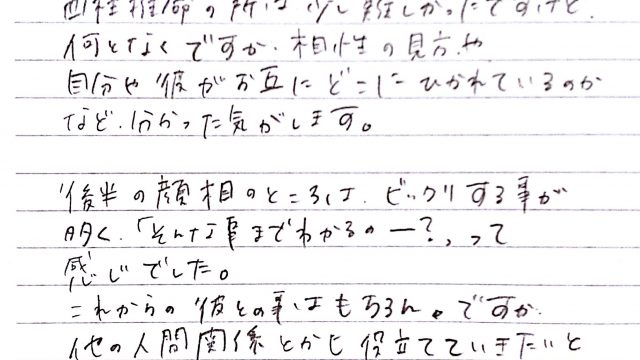 四柱推命の所は少し難しかったですけど、
何となくですが、相性の見方や
自分や彼がお互にどこにひかれているのか
など、分かった気がします。
後半の顔相のところは、ビックリする事が
多く、「そんな事までわかるのー?、って
感じでした。
これからの彼との事はもちろん。ですが
他の人間関係とかも役立てていきたいと